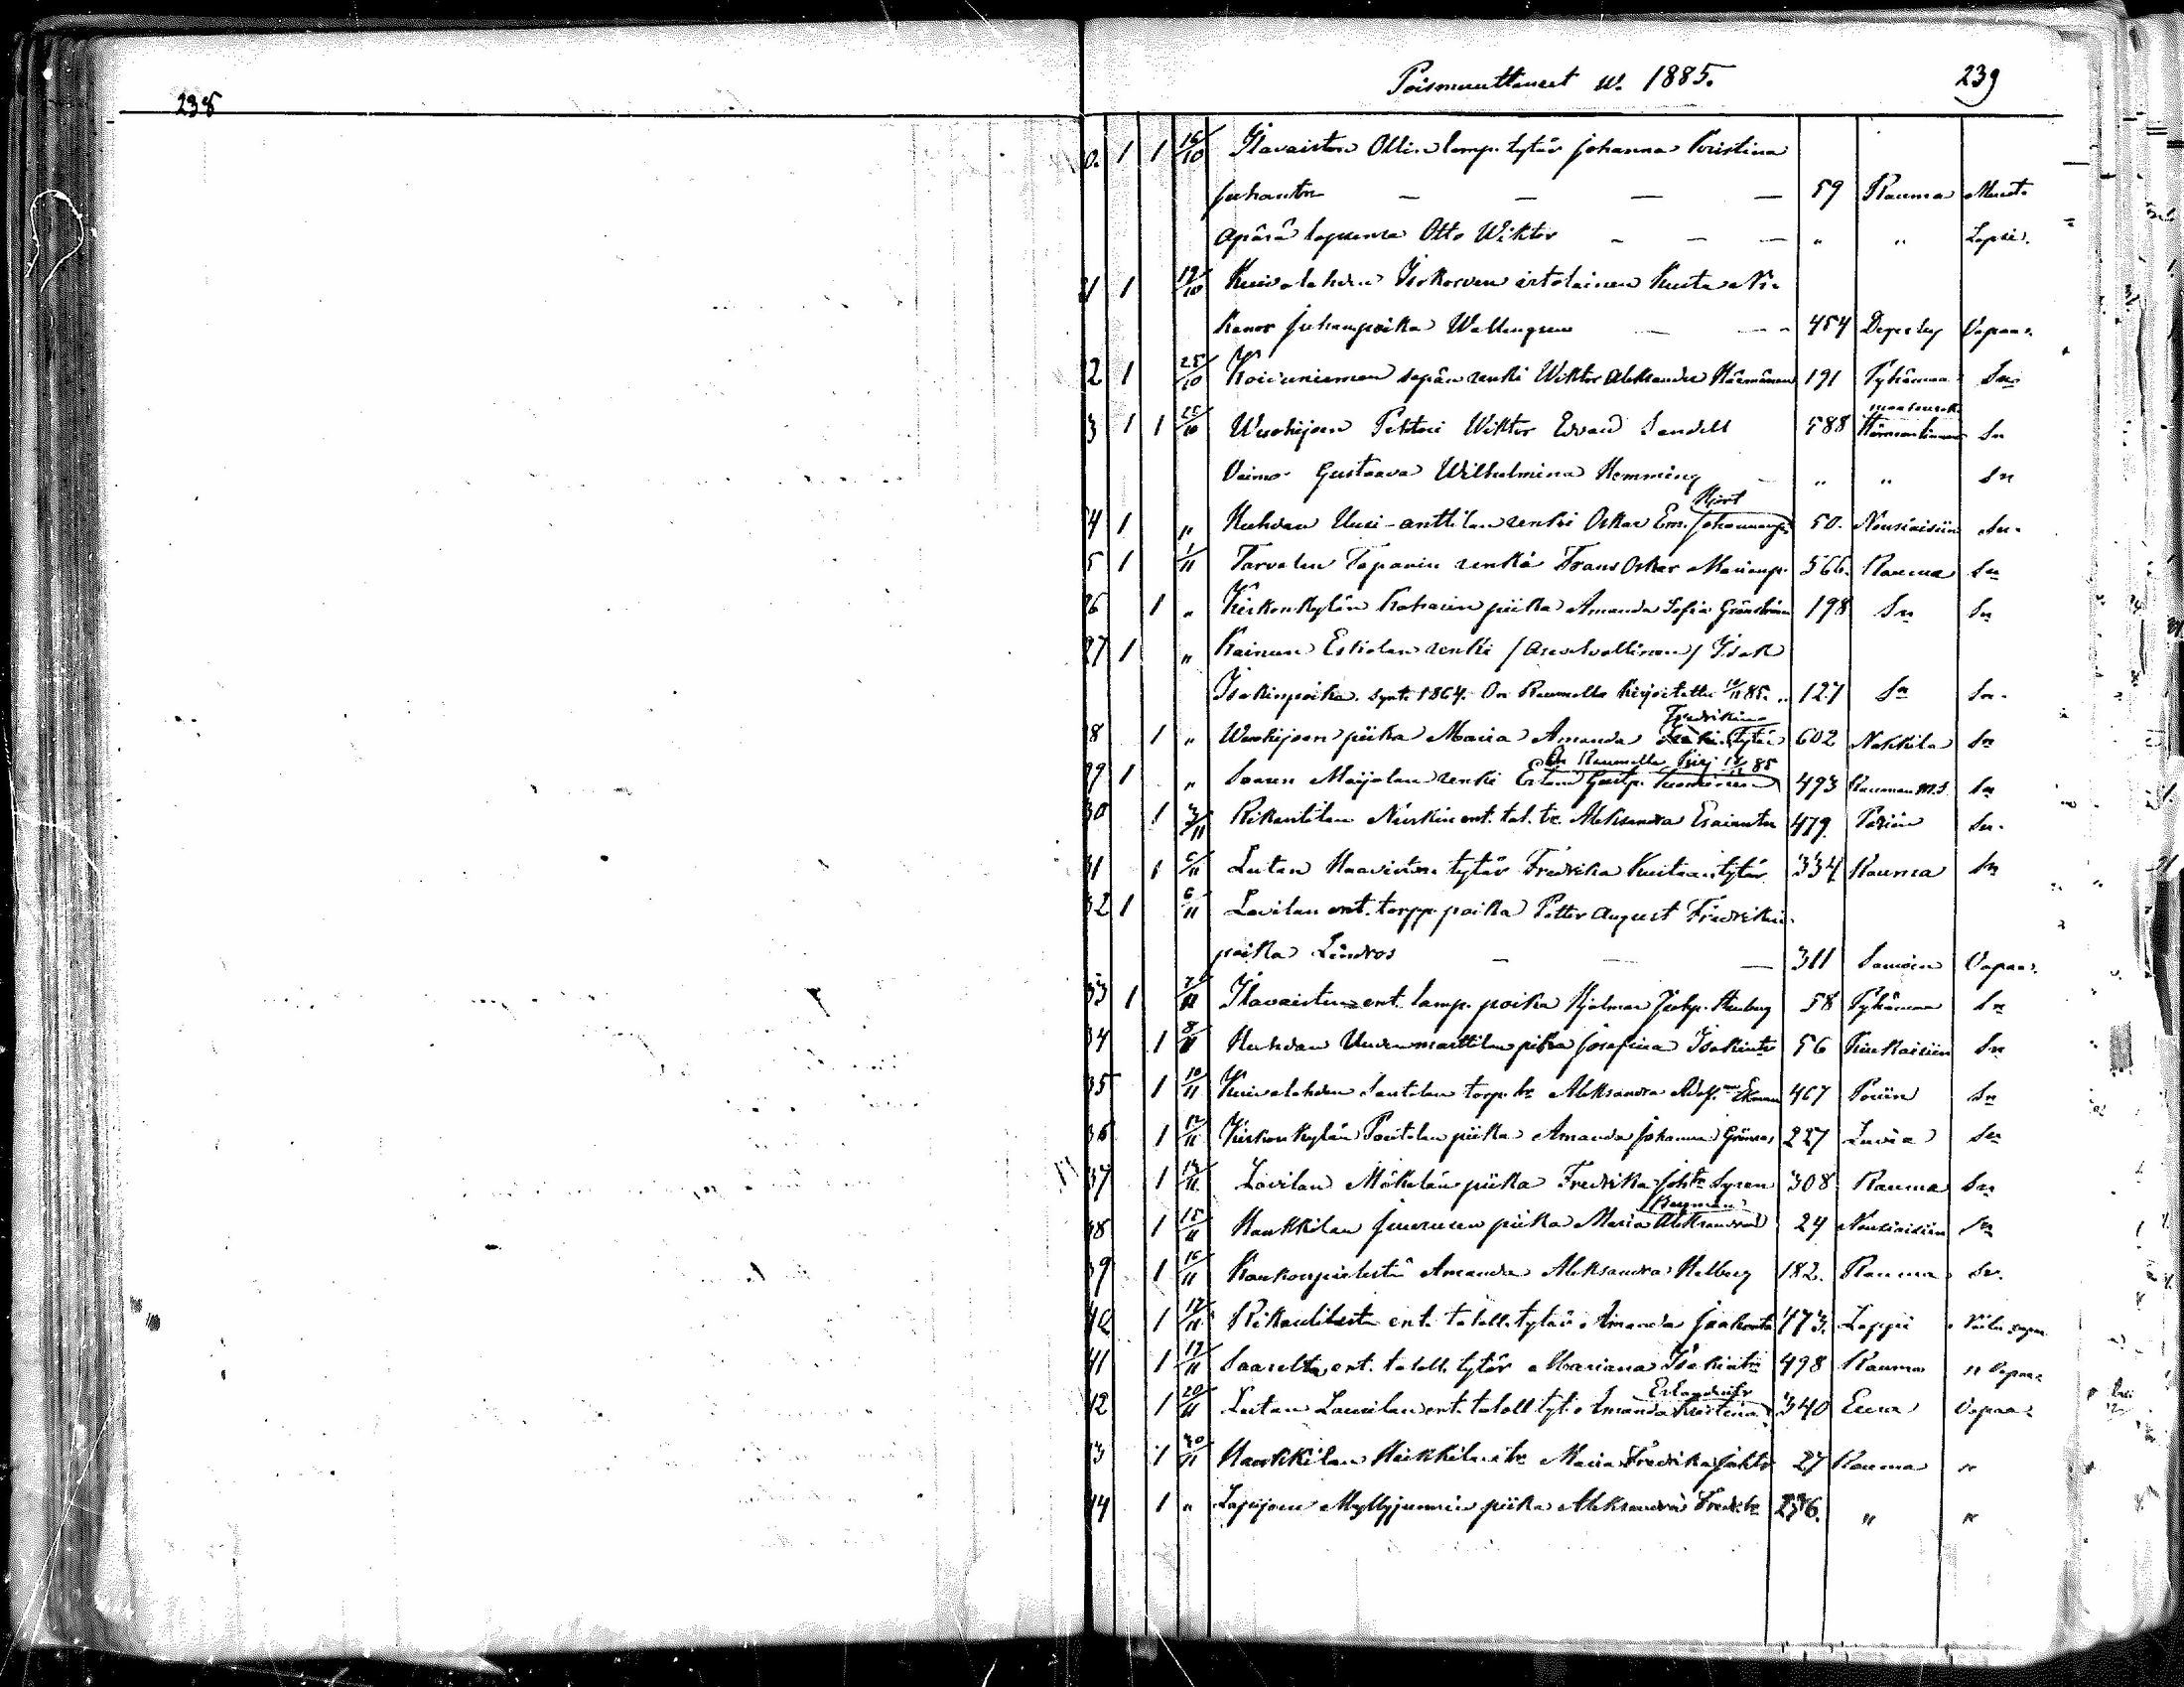 238
Poismuuttaneet w. 1885. 239
0. 1 1 16/10 Ilavaisten Ollin lamp. tytär Johanna Kristina
Juhantr — — — — 59 Rauma Muut.
Apärä lapsensa Otto Wiktor - - — " " Lapsi.
21 1 19/10 Kuivalahden Isokorven irtolainen Kusta Ni-
kanor Juhanpoika Wallengren — - - 454 Degerby Vapaa.
2 1 25/10 Koivuniemen sepän renki Wiktor Aleksander 191 Pyhämaa Sn
3 1 1 25/10 Wuohijoen Pehtori Wiktor Edvard Sandell 588 Hämeenlinnan maaseurak. Sn
Vaimo Gustaava Wilhelmina Hemming - " " Sn
24 1 " Huhdan Uusi-anttilan renki Oskar Em. Johananp. Hjort 50. Nousiaisiin Sn.
5 1 1/11 Tarvolan Tapanin renki Frans Oskar Marianp. 566. Rauma Sn
26 1 " Kirkonkylän piika Amanda Sofia Grönström 198 Sn Sn
27 1 " Kainun Eskolan renki / Isak
Isakinpoika. synt. 1864. On Raumalla kirjoitettu 85. " 127 Sn Sn.
28 1 " Wuohijoen piika Maria Amanda Fredrikin tytär 602 Nakkila Sn
On Raumalla kirj 85
29 1 " Saaren Maijalan renki Gustp. 493 Rauman M.S. Sn
30 1 3/11 Rikantilan ent. tal. tr. Aleksandra Esaiantr 479 Poriin Sn.
31 1 6/11 Lutan Haaviston tytär Fredrika Kustaantytär 334 Rauma Sn
32 1 6/11 Lavilan ent. torpp. poika Petter August Fredrikin
poika Lindros — — — 311 Vapaa.
33 1 7/11 Ilavaisten ent. lamp. poika Hjalmar Stenberg 58 Pyhämaa Sn
34 1 8/11 Huhdan Uudenmarttilan piika Josefina Isakintr 56 Kiukaisiin Sn
35 1 10/11 Kuivalahden Santalan torp. tr Aleksandra Adolf. Ekman 467 Poriin Sn
36 1 12/11 Kirkonkylän piika Amanda Johanna Grönroos 227 Luvia Sn
37 1 13/11 Lavilan Mäkelän piika Fredrika Johtr Syren 308 Rauma Sn
38 1 15/11 Hankkilan Juurusen piika Maria Aleksandra Bergman 24 Nousiaisiin Sn
39 1 16/11 Kaukonpielestä Amanda Aleksandra Helberg 182. Rauma Sn.
40 1 17/11 Rikantilasta ent. taloll. tytär Amanda Jaakontr 473. Lappi
41 1 19/11 Saarelta ent. taloll. tytär Mariana Isakintr 498 Rauma " Vapaa
42 1 20/11 Lutan Laurilan ent. taloll. tyt. Amanda Kristina Erlandintr 340 Eura Vapaa.
3 1 30/11 Hankkilan Heikkilän tr Maria Fredrika Johtr 27 Rauma "
44 1 " Lapijoen Myllyjunnin piika Aleksandra Fredr.tr 276. " "